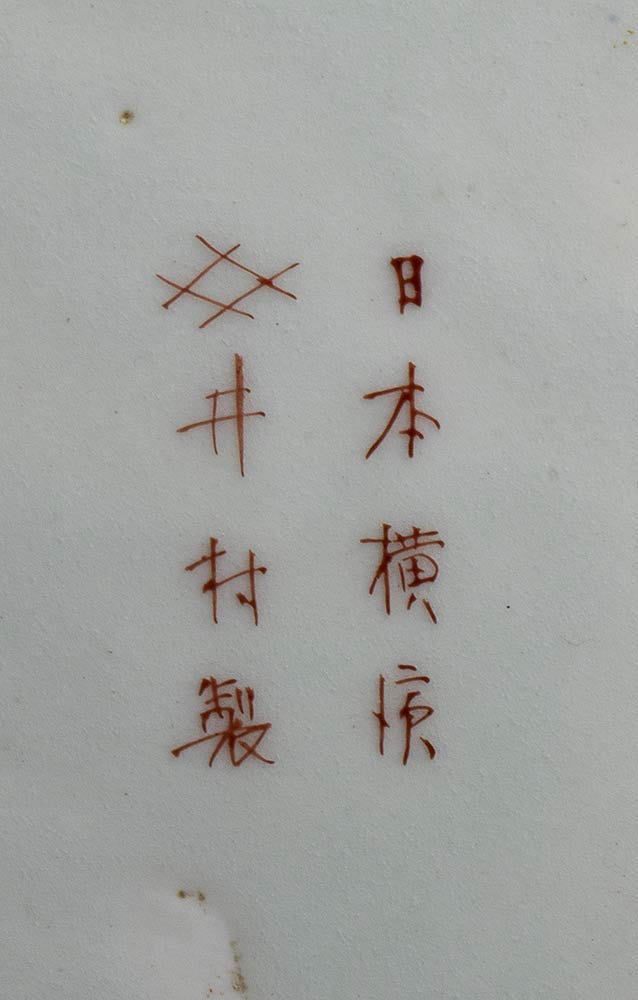 日本横濱
井村製